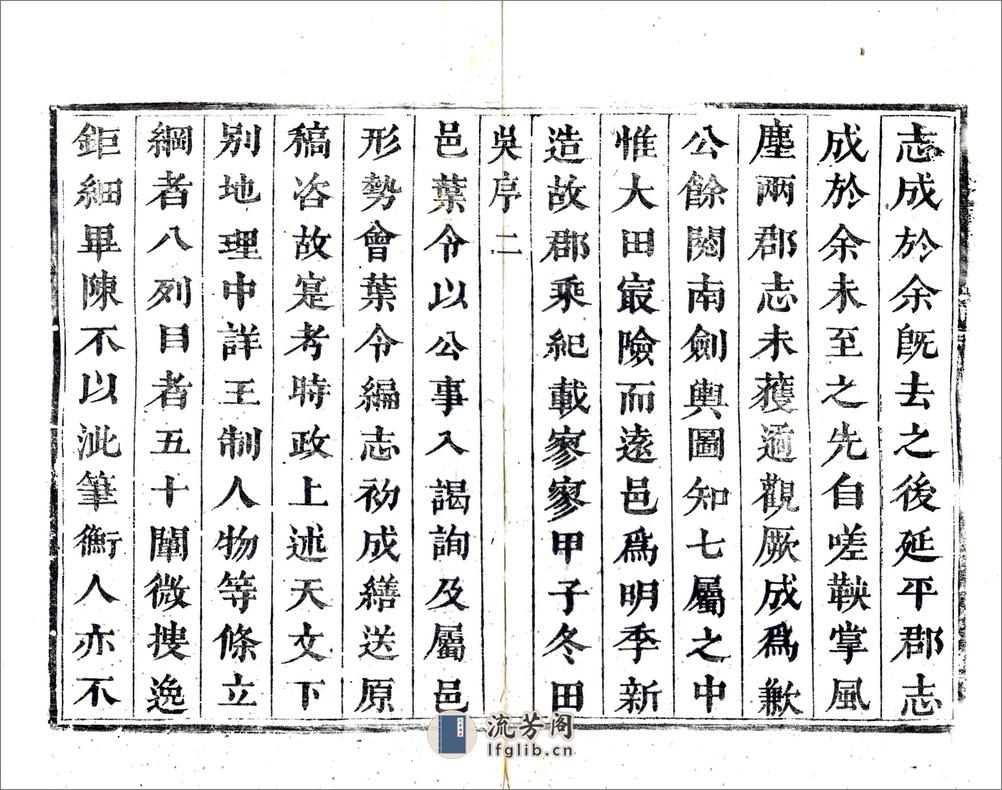 志成於余既去之後延平郡志
成於余未至之先自嗟鞅掌風
塵兩郡志未獲遹觀厥成爲歉
公餘閱南劍輿圖知七屬之中
惟大田㝡險而遠邑爲明季新
造故郡乘紀載寥寥甲子冬田
吳序 二
邑葉令以公事入謁詢及屬邑
形勢會葉令編志初成繕送原
稿咨故寔考時政上述天文下
别地理中詳王制人物等條立
綱者八列目者五十闡微搜逸
鉅細畢陳不以泚筆衡人亦不
流芳阁
lfglib.cn